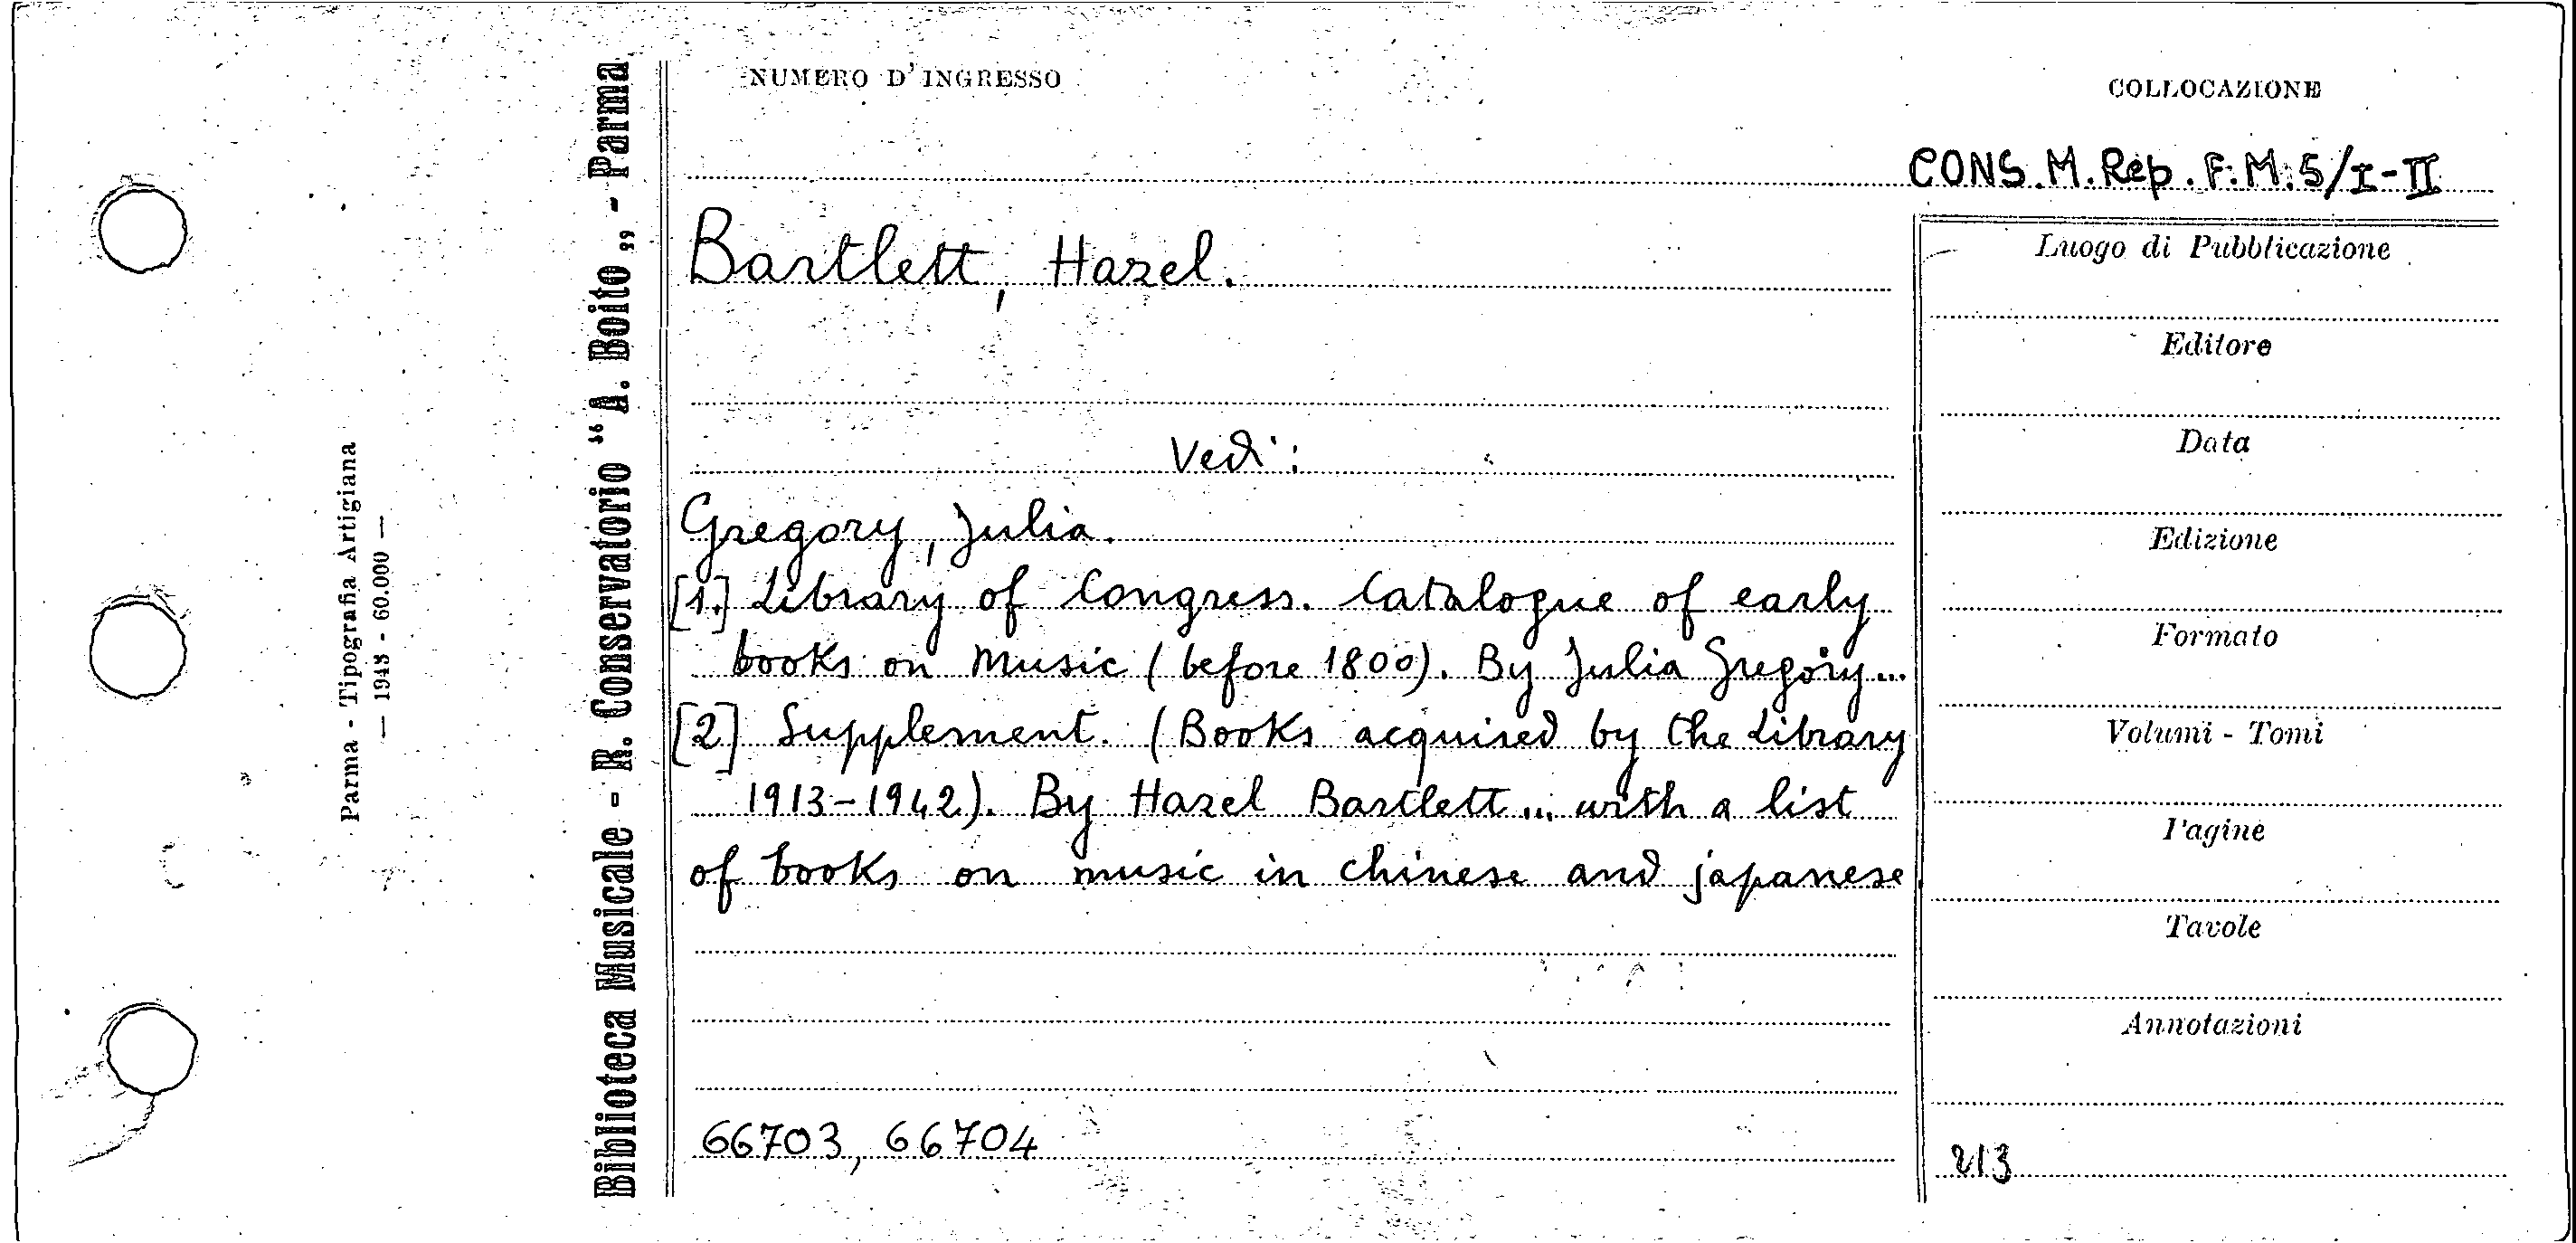 Parma - Tipografia Artigiana
— 1943 - 60.000 —
Biblioteca Musicale - R. Conservatorio “A. Boito„ - Parma
NUMERO D'INGRESSO
COLLOCAZIONE
CONS.M.Rep.F.M.5/I-II
Bartlett, Hazel.
Vedi:
Gregory, Julia.
[1.] Library of Congress. Catalogue of early
books on Music (before 1800). By Julia Gregory...
[2] Supplement. (Books acquired by the Library
1913-1942). By Hazel Bartlett... with a list
of books on music in chinese and japanese
66703, 66704
Luogo di Pubblicazione
Editore
Data
Edizione
Formato
Volumi - Tomi
Pagine
Tavole
Annotazioni
213